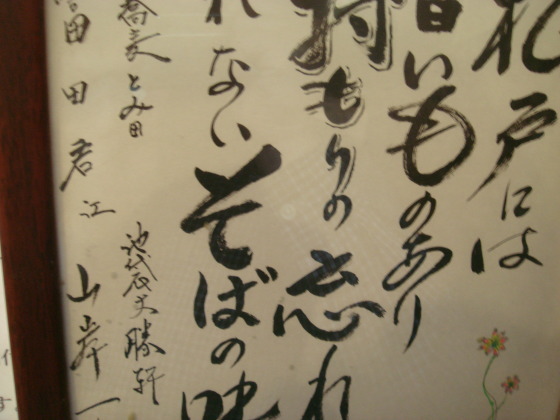 松戸には
旨いものあり
特もりの忘れ
れない そばの味
蕎麦 とみ田 池袋大勝軒
富田君江 山岸一